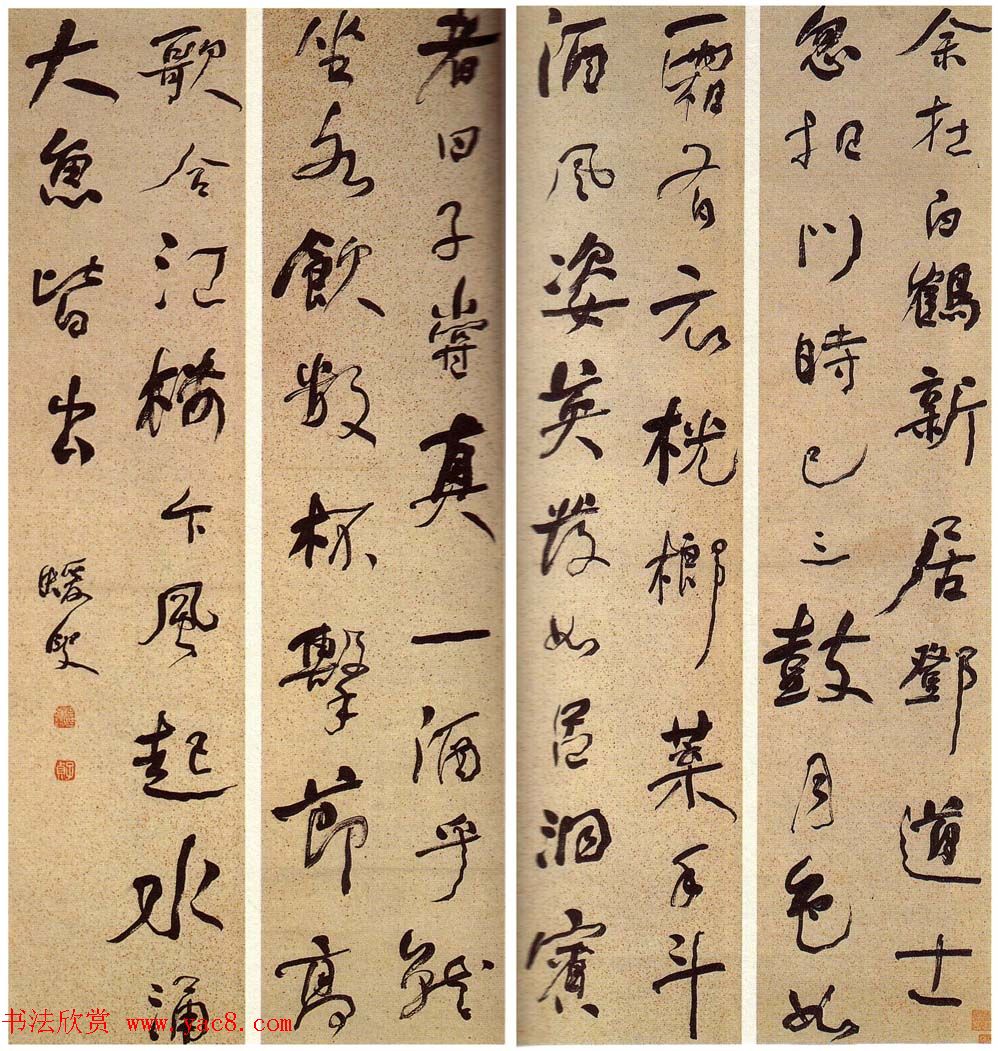 余在白鶴新居鄧道士
忽扣門時已三鼓月色如
霜有衣桄榔葉手斗
酒風姿英發如呂洞賓
者曰子嘗真一酒乎就
坐各飲數杯擊節高
歌合江樓下風起水涌
大魚皆出
蝯叟
书法欣赏 www.yac8.com